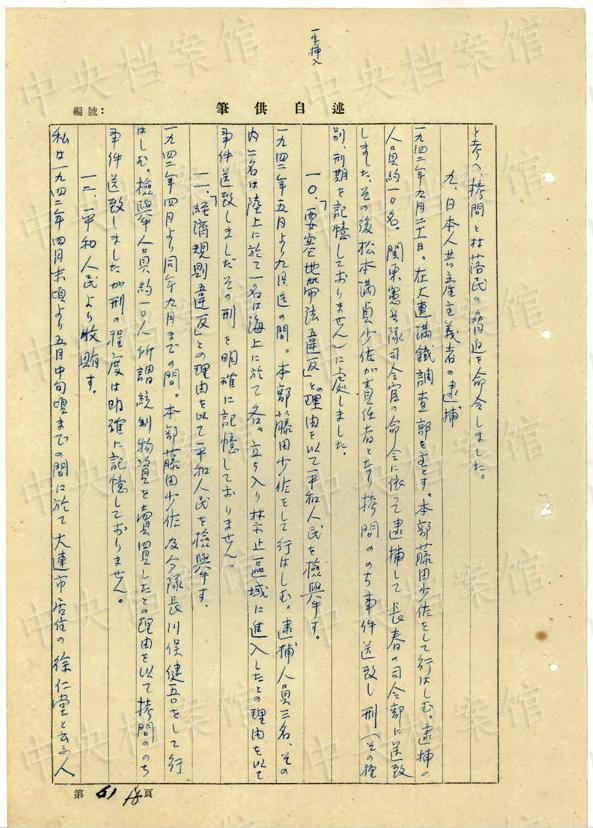 一字挿入
編號:
筆供自述
と考へ拷問と村落民の
を命令しました。
九、日本人共産主義者の逮捕
一九四二年九月二十一日。在大連満鉄調査部を主とす。本部藤田少佐をして行はしむ。逮捕の
人員約一〇名。関東憲兵隊司令官の命令に依って逮捕して長春の司令部に送致
しました、その後松本満貞少佐が責任者となり拷問ののち事件送致し刑(その種
別、刑期を記憶しておりません)に処しました。
一〇、「要塞地帯法違反」との理由を以て平和人民を検挙す。
一九四二年五月より九月迄の間。本部藤田少佐をして行はしむ。逮捕人員三名、その
内二名は陸上に於て一名は海上に於て各〻立ち入り禁止區域に進入したとの理由を以て
事件送致しましたその刑を明確に記憶しておりません。
一一、「経済規則違反」との理由を以て平和人民を検挙す。
一九四二年四月より同年九月までの間。本部藤田少佐及分隊長川俣健吾をして行
はしむ。検挙人員約一〇人所謂統制物資を賣買したとの理由を以て拷問ののち
事件送致しましたが刑の程度は明確に記憶しておりません。
一二、平和人民より收賄す。
私は一九四二年四月末頃より五月中旬頃までの間に於て大連市居住の徐仁堂と云ふ人
第 61 18 頁
中央档案馆